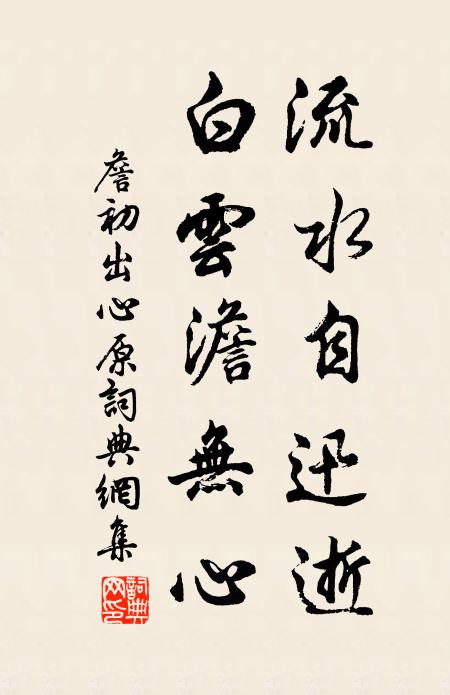 流水自迅逝
白雲澹無心
詹初出心原詞典網集
詞典網印